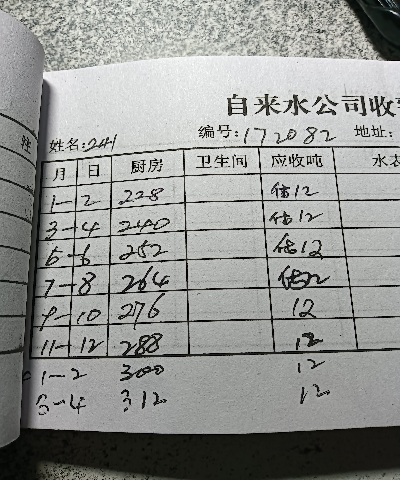 自来水公司收
姓名:241 编号:172082 地址:
月 日 厨房 卫生间 应收吨 水
1-2 228 估12
3-4 240 估12
5-6 252 估12
7-8 264 估12
9-10 276 12
11-12 288 12
1-2 300 12
3-4 312 12